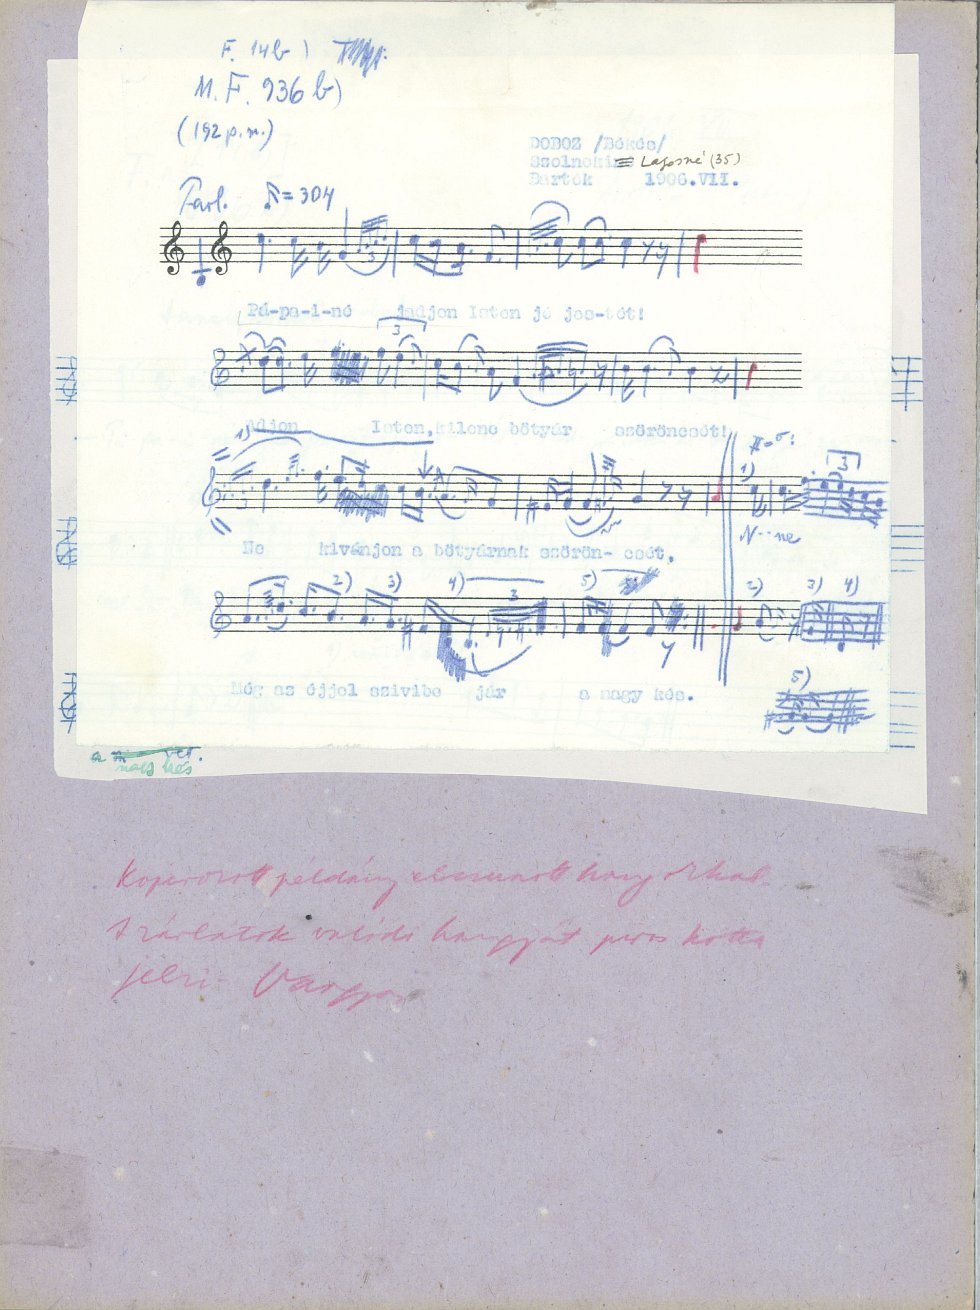 F. 14b)
M.F. 936 b)
(192 p.n.)
DOBOZ /Békés/
Szolnoki Lajosné (35)
Bartók 1906.VII.
Parl. ♪=304
3
Pá-pa-i-né jadjon Isten jó jes-tét!
3
Adjon Isten,kilenc bötyár szöröncsét!
1)
1) 3
N--ne
Ne kivánjon a bötyárnak szörön- csét,
2) 3) 4) 3 5)
2) 3) 4)
Még az éjjel szivibe jár a nagy kés.
5)
a
nagy kés
példány
A zárlatok valódi hangját piros kotta
jelzi. Vargyas